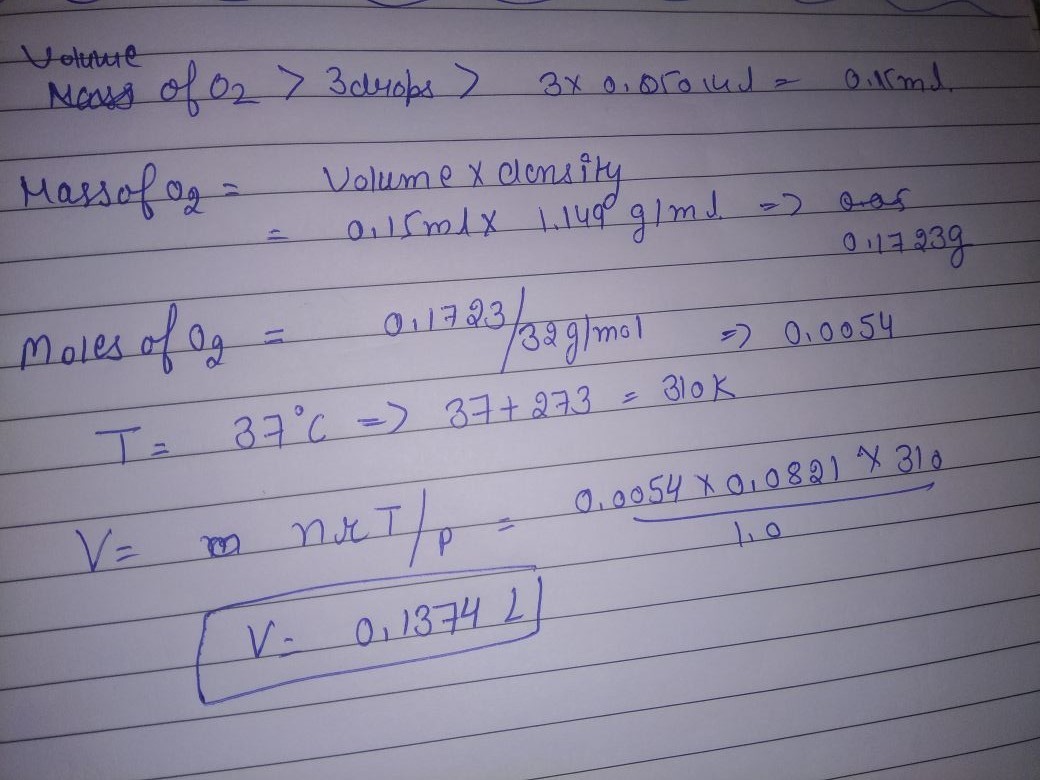 Volume
Mass of O2 > 3drops > 3 x 0.050 ml = 0.15ml.
Mass of O2 = Volume x density
= 0.15ml x 1.149 g/ml => 0.05
0.1723g
Moles of O2 = 0.1723/32g/mol => 0.0054
T = 37°C => 37 + 273 = 310K
V = m nRT/P = 0.0054 x 0.0821 x 310
1.0
V = 0.1374 L